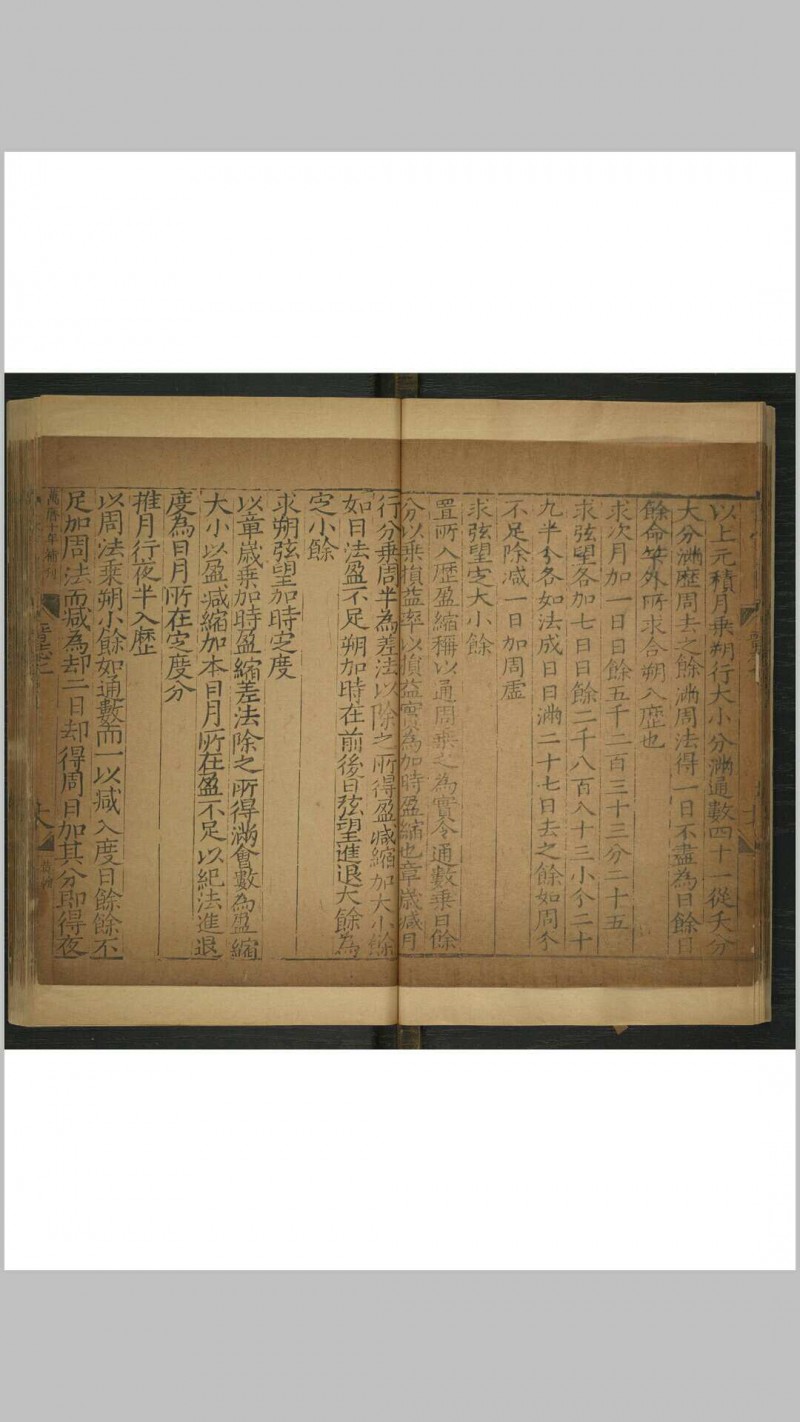 以上元積月乘朔行大小分滿通數四十一從大分
大分滿歷周去之餘滿周法得一日不盡為日餘日
餘命筭外所求合朔入歷也
求次月加一日日餘五千二百三十三分二十五
求弦望各加七日日餘二千八百八十三小分二十
九半分各如法成日日滿二十七日去之餘如周分
不足除減一日加周虛
求弦望定大小餘
置所入歷盈縮稱以通周乘之為實令通數乘日餘
分以乘損益率以損益實為加時盈縮也章歲減月
行分乘周半為差法以除之所得盈減縮加大小餘
如日法盈不足朔加時在前後日弦望進退大餘為
定小餘
求朔弦望加時定度
以章歲乘加時盈縮差法除之所得滿會數為盈縮
大小以盈減縮加本日月所在盈不足以紀法進退
度為日月所在定度分
推月行夜半入歷
以周法乘朔小餘如通數而一以減入度日餘餘不
足加周法而減為却一日却得周日加其分即得夜
萬曆十年補刊